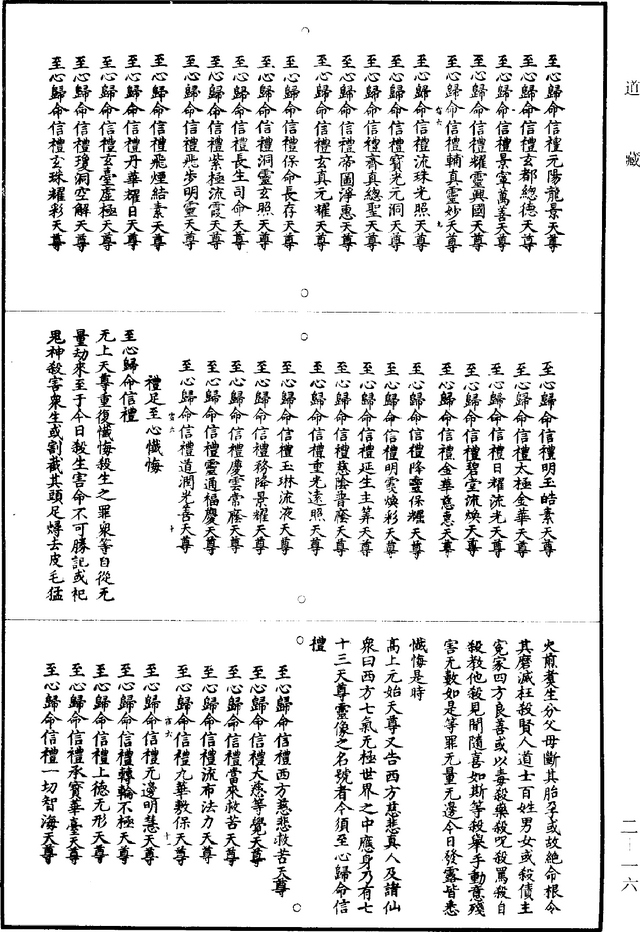 道藏
至心歸命信禮元陽龍景天尊
至心歸命信禮玄都總德天尊
至心歸命信禮景宰萬善天尊
至心歸命信禮耀靈興國天尊
至心歸命信禮輔真靈妙天尊
至心歸命信禮流珠光照天尊
至心歸命信禮寶光元洞天尊
至心歸命信禮齋真總聖天尊
至心歸命信禮帝圖淨惠天尊
至心歸命信禮玄真元耀天尊
至心歸命信禮保命長存天尊
至心歸命信禮洞靈玄照天尊
至心歸命信禮長生司命天尊
至心歸命信禮紫極流霞天尊
至心歸命信禮飛步明靈天尊
至心歸命信禮飛煙結素天尊
至心歸命信禮丹華耀日天尊
至心歸命信禮玄臺虛極天尊
至心歸命信禮瓊洞空解天尊
至心歸命信禮玄珠耀彩天尊
至心歸命信禮明玉皓素天尊
至心歸命信禮太極金華天尊
至心歸命信禮日耀流光天尊
至心歸命信禮碧堂流煥天尊
至心歸命信禮金華慈惠天尊
至心歸命信禮降靈保耀天尊
至心歸命信禮明霞煥彩天尊
至心歸命信禮延生主筭天尊
至心歸命信禮慈陰普蔭天尊
至心歸命信禮重光遠照天尊
至心歸命信禮玉琳流液天尊
至心歸命信禮務降景耀天尊
至心歸命信禮慶雲常蔭天尊
至心歸命信禮靈通福慶天尊
至心歸命信禮道潤光善天尊
禮足至心懺悔
至心歸命信禮
无上天尊重復懺悔殺生之罪衆等自從无
量劫來至于今日殺生害命不可勝記或祀
鬼神殺害衆生或割截其頭足燖去皮毛猛
火煎煑生分父母斷其胎孕或故絶命根令
其磨滅枉殺賢人道士百姓男女或殺債主
冤家四方良善或以毒殺藥殺呪殺罵殺自
殺教他殺見聞隨喜如斯等殺舉手動意殘
害无數如是等罪无量无邊今日發露皆悉
懺悔是時
高上元始天尊又告西方慈悲真人及諸仙
衆曰西方七氣无極世界之中應身乃有七
十三天尊靈像之名號者今須至心歸命信
禮
至心歸命信禮西方慈悲救苦天尊
至心歸命信禮大慈等覺天尊
至心歸命信禮當來救苦天尊
至心歸命信禮流布法力天尊
至心歸命信禮九華敷保天尊
至心歸命信禮元邊明慧天尊
至心歸命信禮轉輪不極天尊
至心歸命信禮上德无形天尊
至心歸命信禮承寶華臺天尊
至心歸命信禮一切智海天尊
二－一六